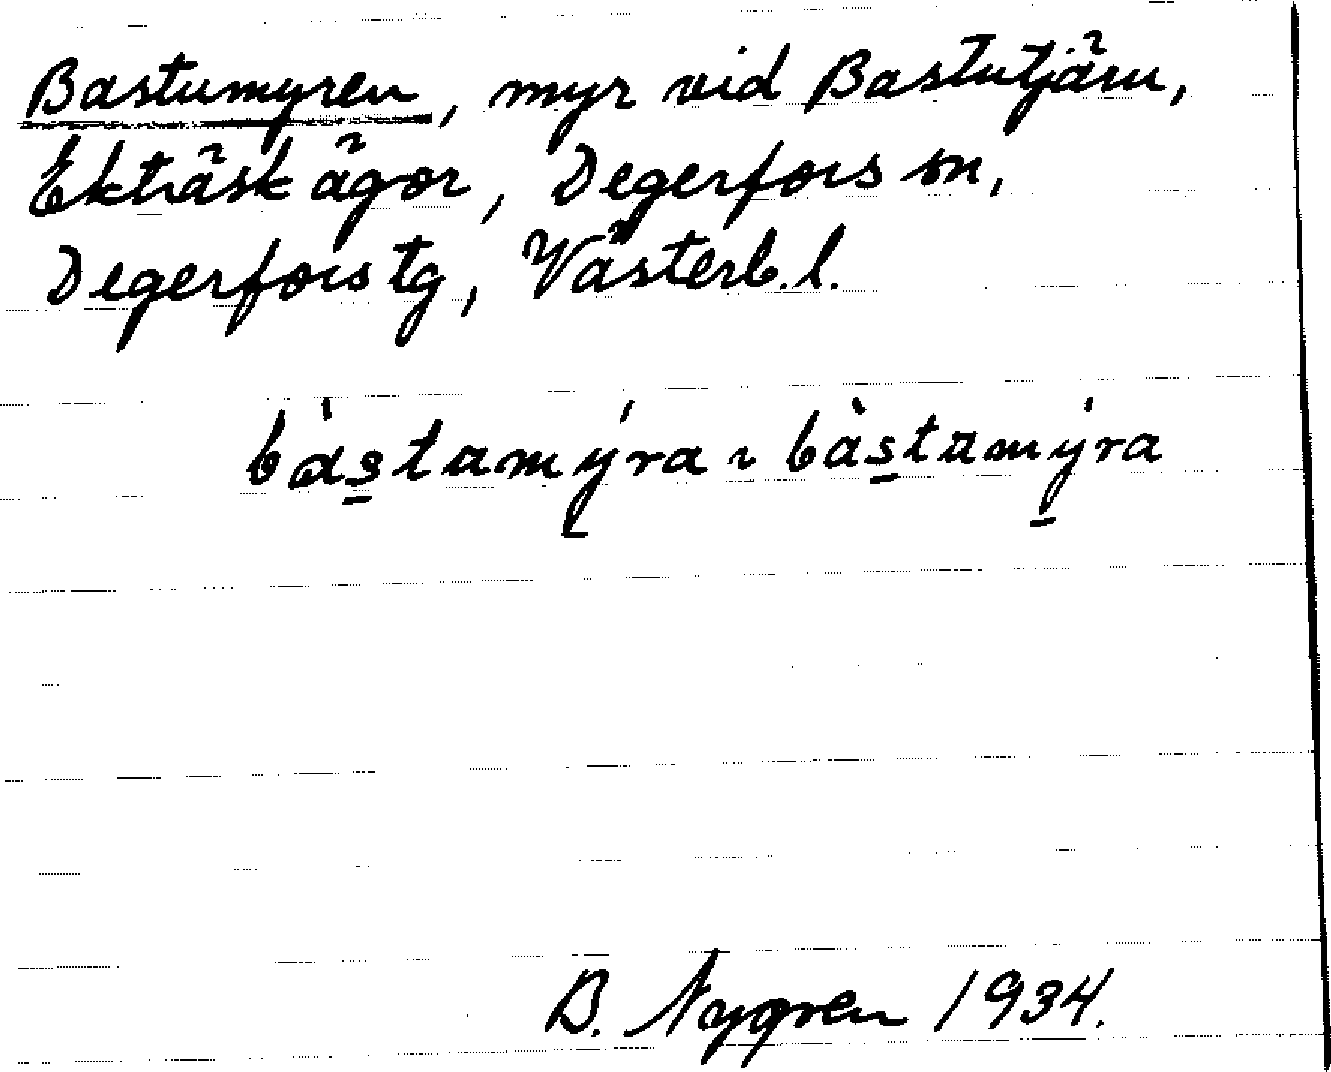 Bastumyren, myr vid Bastutjärn,
Ekträsk ägor, Degerfors sn,
Degerfors tg, Västerb. l.
bàs̠tamý̠ra ~ bàs̠tamý̠ra
B. Nygren 1934.